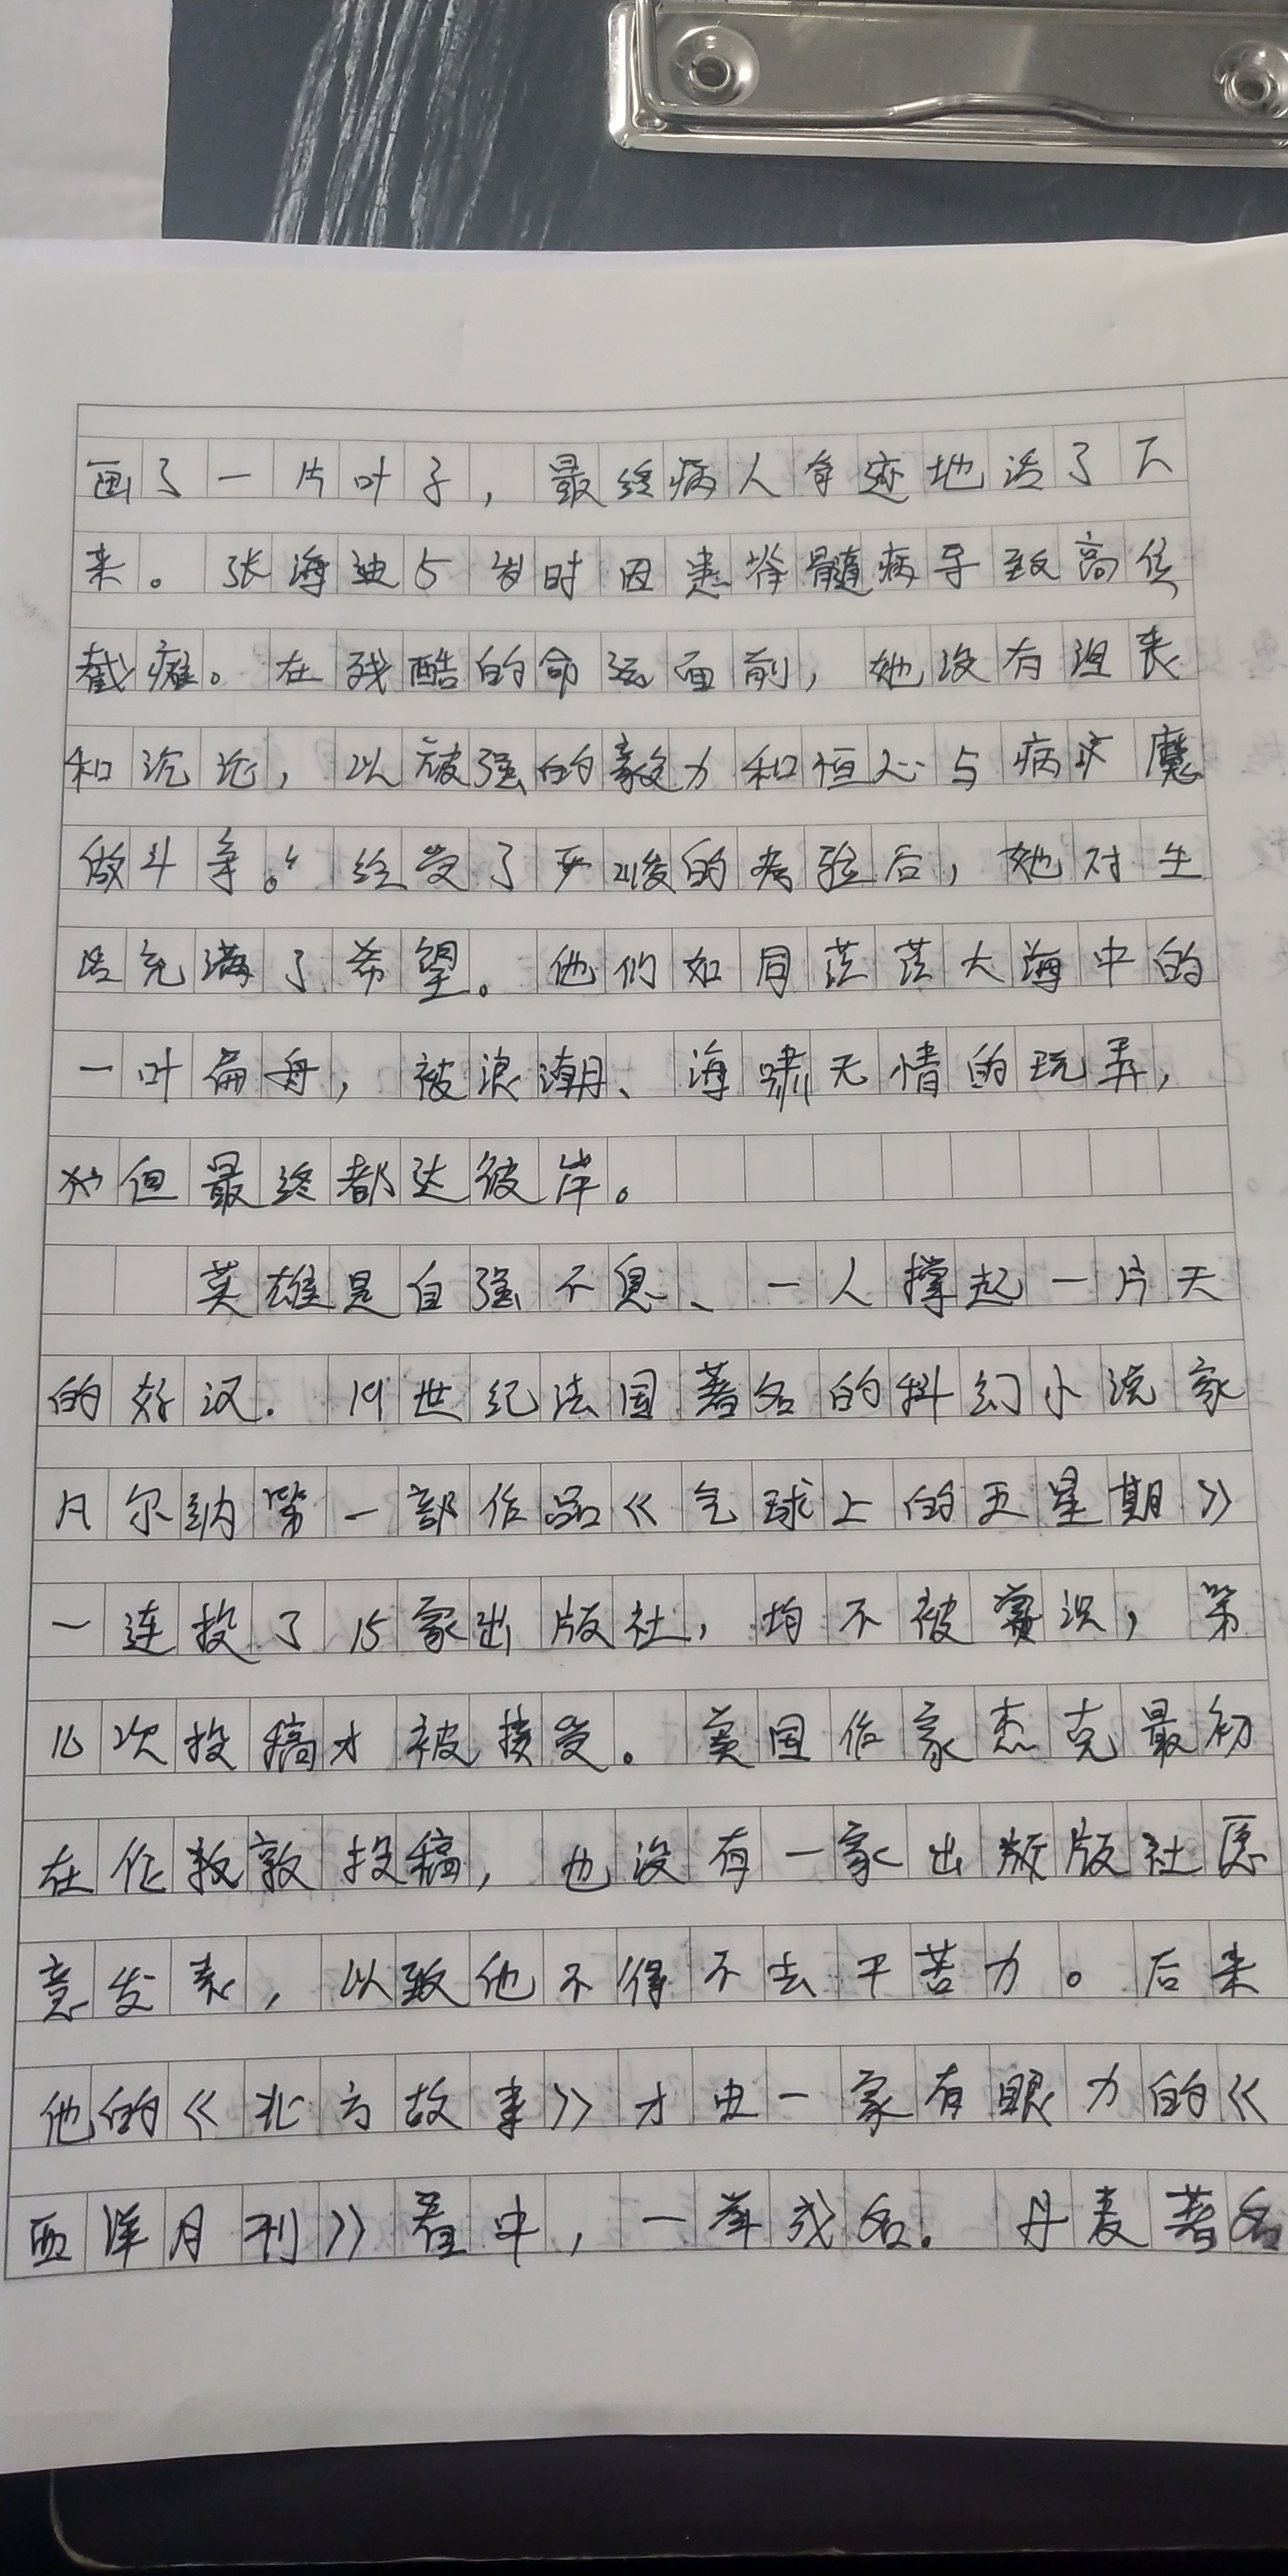 画了一片叶子，最终病人奇迹地活了下
来。张海迪5岁时因患脊髓病导致高位
截瘫。在残酷的命运面前，她没有沮丧
和沉沦，以顽强的毅力和恒心与病疾魔
做斗争。经受了严峻的考验后，她对生
活充满了希望。他们如同茫茫大海中的
一叶扁舟，被浪潮、海啸无情的玩弄，
但最终都达彼岸。
英雄是自强不息、一人撑起一片天
的好汉. 19世纪法国著名的科幻小说家
凡尔纳第一部作品《气球上的五星期》
一连投了15家出版社，均不被赏识，第
16次投稿才被接受。美国作家杰克最初
在伦敦投稿，也没有一家出版社愿
意发表，以致他不得不去干苦力。后来
他的《北方故事》才由一家有眼力的《
西洋月刊》看中，一举成名. 丹麦著名